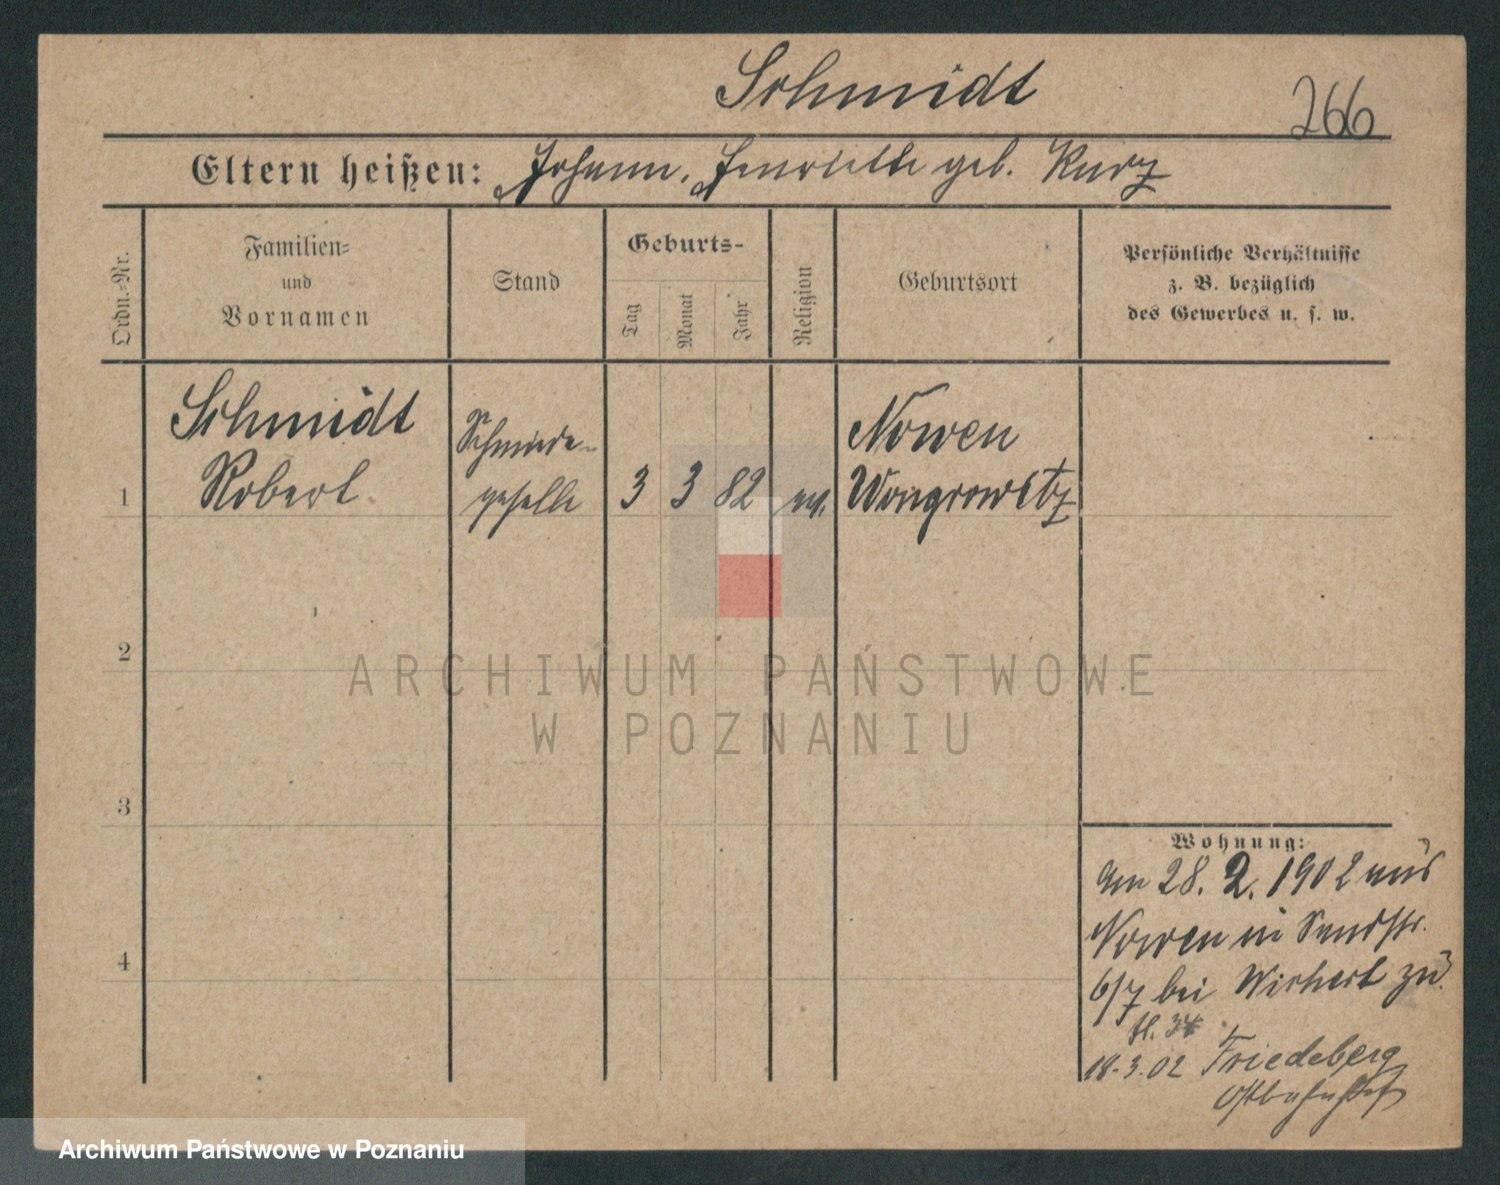 Schmidt
266
Eltern heißen: Johann, Henriette geb. Kurz
Ordn.-Nr.
Familien-
und
Vornamen
Stand
Geburts-
Tag
Monat
Jahr
Religion
Geburtsort
Persönliche Verhältnisse
z. B. bezüglich
des Gewerbes u. s. w.
1
Schmidt
Robert
Schmiede-
geselle
3
3
82
ev.
Nowen
Wongrowitz
2
3
4
Wohnung:
Am 28. 2. 1902 aus
Nowen in Sandstr.
6/7 bei Wichert zu.
18.3.02 Friedeberg
Ostbahnhof
ARCHIWUM PAŃSTWOWE
W POZNANIU
Archiwum Państwowe w Poznaniu